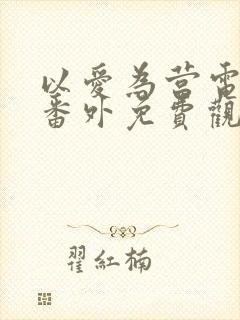 以愛為營電
番外免費觀
翟紅楠